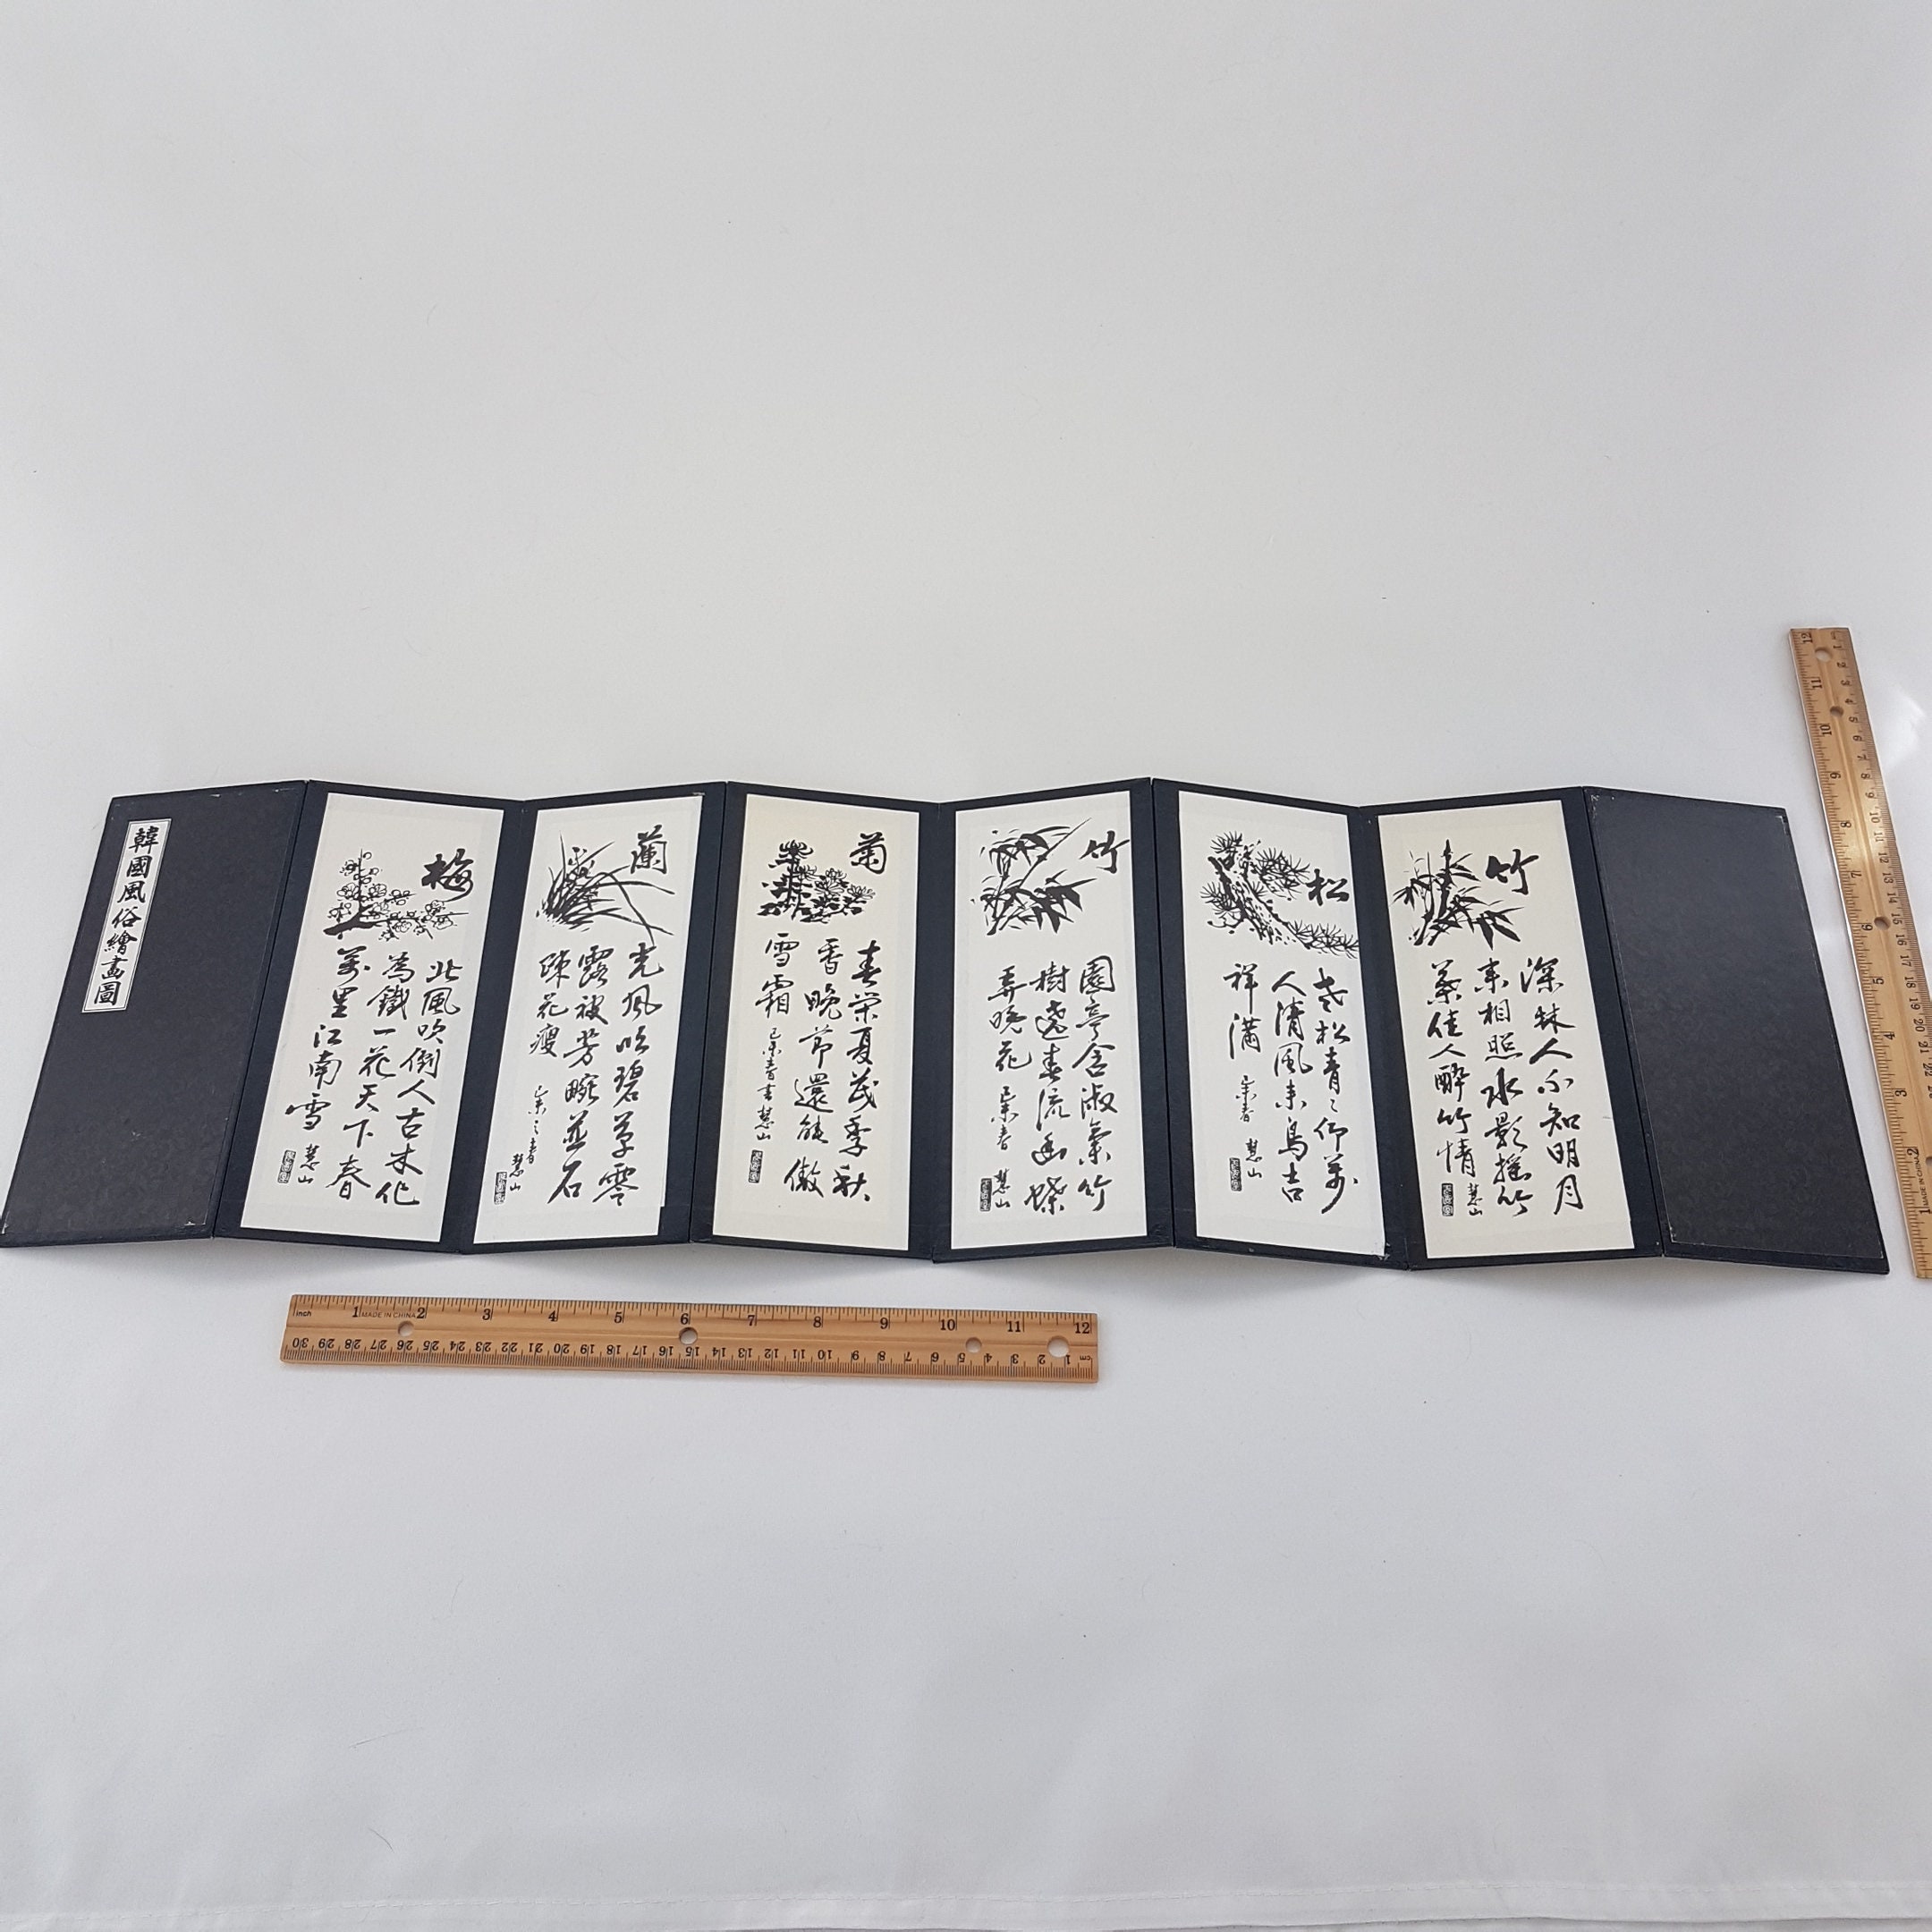 韓國風俗繪畫圖
梅
北風吹倒人古木化
為鐵一花天下春
萬里江南雪
慧山
蘭
光風吹碧草零
露被芳畹並石
疎花瘦
己未之春
慧山
菊
春榮夏茂季秋
香晚節還能傲
雪霜
己未春書慧山
竹
園亭含淑氣竹
樹遶春流幽蝶
弄晚花
己未春
慧山
松
老松青々仰萬
人清風来鳥吉
祥滿
未春
慧山
竹
深林人不知明月
来相照水影搖竹
葉佳人醉竹情
慧山
inch 1 2 3 4 5 6 7 8 9 10 11 12
MADE IN CHINA
30 29 28 27 26 25 24 23 22 21 20 19 18 17 16 15 14 13 12 11 10 9 8 7 6 5 4 3 2 1 cm
12 11 10 9 8 7 6 5 4 3 2 1
MADE IN CHINA
1 2 3 4 5 6 7 8 9 10 11 12 13 14 15 16 17 18 19 20 21 22